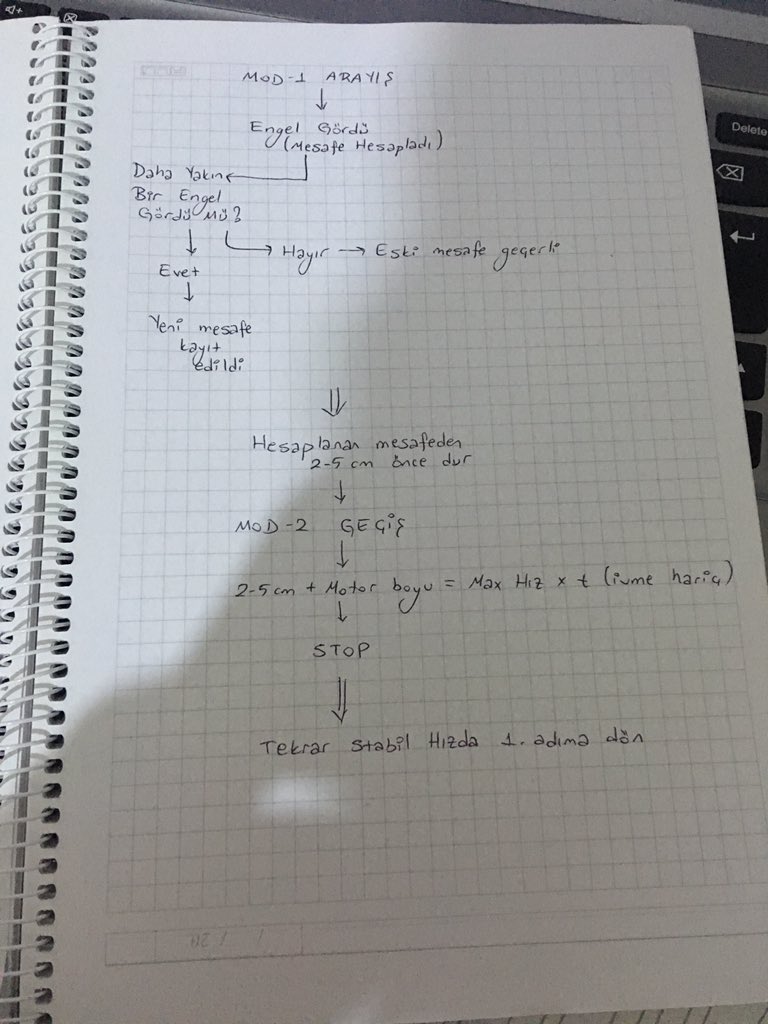 MOD-1 ARAYIŞ
Engel Gördü
(Mesafe Hesapladı)
Daha Yakın
Bir Engel
Gördü Mü?
Hayır → Eski mesafe geçerli
Evet
Yeni mesafe
kayıt
edildi
Hesaplanan mesafeden
2-5 cm önce dur
MOD-2 GEÇİŞ
2-5 cm + Motor boyu = Max Hız x t (ivme hariç)
STOP
Tekrar Stabil Hızda 1. adıma dön
Delete